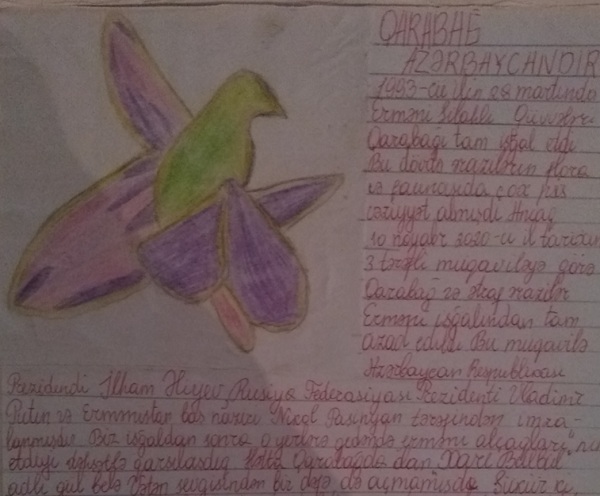 QARABAĞ
AZƏRBAYCANDIR
1993-cü ilin martında
Erməni Silahlı
Qarabağı tam işğal etdi
Bu dövrdə ərazilərin flora
və faunasıda çox pis
vəziyyət almışdı Ancaq
10 noyabr 2020-ci il tarixin
3 tərəfli müqaviləyə görə
Qarabağ və ətraf ərazilər
Erməni işğalından tam
azad edildi Bu müqavilə
Azərbaycan Respublikası
Prezidendi İlham Əliyev, Rusiya Federasiyası Prezidenti Vladimir
Putin və Ermənistan baş naziri Nikol Paşinyan tərəfindən imza-
lanmışdır Biz işğaldan sonra o yerlərə gedəndə erməni alçaqların
etdiyi dəhşətlə qarşılaşdıq Hətta Qarabağda olan Xarı Bülbül
adlı gül belə Vətən sevgisindən bir dəfə də açmamışdı Şükür ki,